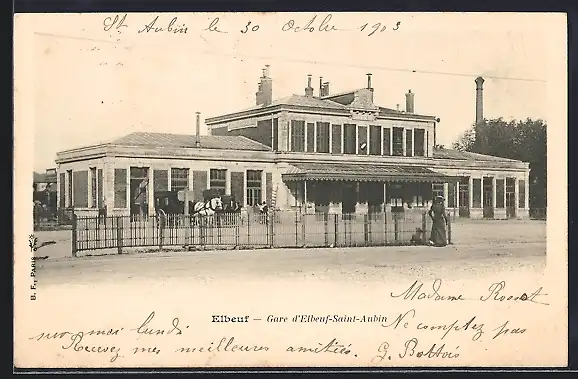 St Aubin le 30 Octobre 1903
B. F., PARIS
Elbeuf — Gare d'Elbeuf-Saint-Aubin
Madame
Ne comptez pas
sur moi lundi
Recevez mes meilleures amitiés. G.